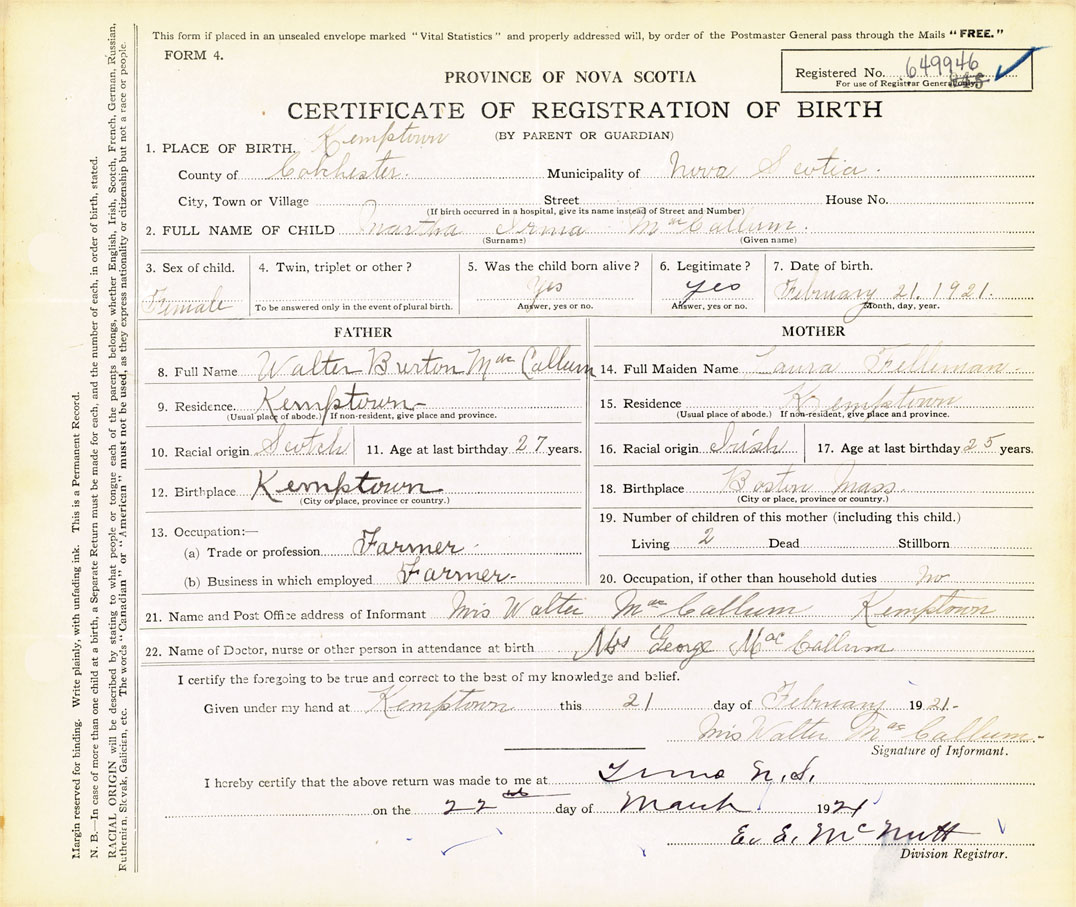 This form if placed in an unsealed envelope marked "Vital Statistics" and properly addressed will, by order of the Postmaster General pass through the Mails "FREE."
FORM 4.
PROVINCE OF NOVA SCOTIA
Registered No. 649946
For use of Registrar General only.
CERTIFICATE OF REGISTRATION OF BIRTH
(BY PARENT OR GUARDIAN)
1. PLACE OF BIRTH. Kemptown
County of Colchester. Municipality of Nova Scotia.
City, Town or Village Street House No.
(If birth occurred in a hospital, give its name instead of Street and Number)
2. FULL NAME OF CHILD Martha Irma MacCallum.
(Surname) (Given name)
3. Sex of child. 4. Twin, triplet or other? 5. Was the child born alive? 6. Legitimate? 7. Date of birth.
Female Yes yes February 21. 1921.
To be answered only in the event of plural birth. Answer, yes or no. Answer, yes or no. Month, day, year.
FATHER
8. Full Name Walter Burton MacCallum
9. Residence. Kemptown
(Usual place of abode.) If non-resident, give place and province.
10. Racial origin Scotch 11. Age at last birthday 27 years.
12. Birthplace Kemptown
(City or place, province or country.)
13. Occupation:—
(a) Trade or profession Farmer.
(b) Business in which employed Farmer.
MOTHER
14. Full Maiden Name Laura
15. Residence Kemptown
(Usual place of abode.) If non-resident, give place and province.
16. Racial origin Irish 17. Age at last birthday 25 years.
18. Birthplace Boston Mass.
(City or place, province or country.)
19. Number of children of this mother (including this child.)
Living 2 Dead Stillborn
20. Occupation, if other than household duties no
21. Name and Post Office address of Informant Mrs Walter MacCallum Kemptown
22. Name of Doctor, nurse or other person in attendance at birth Mrs George MacCallum
I certify the foregoing to be true and correct to the best of my knowledge and belief.
Given under my hand at Kemptown this 21 day of February 1921.
Mrs Walter MacCallum.
Signature of Informant.
I hereby certify that the above return was made to me at Truro N.S.
on the 22nd day of March 1921
E. E. McNutt
Division Registrar.
Margin reserved for binding. Write plainly, with unfading ink. This is a Permanent Record.
N. B.—In case of more than one child at a birth, a Separate Return must be made for each, and the number of each, in order of birth, stated.
RACIAL ORIGIN will be described by stating to what people or tongue each of the parents belongs, whether English, Irish, Scotch, French, German, Russian,
Ruthenian, Slovak, Galician, etc. The words "Canadian" or "American" must not be used, as they express nationality or citizenship but not a race or people.